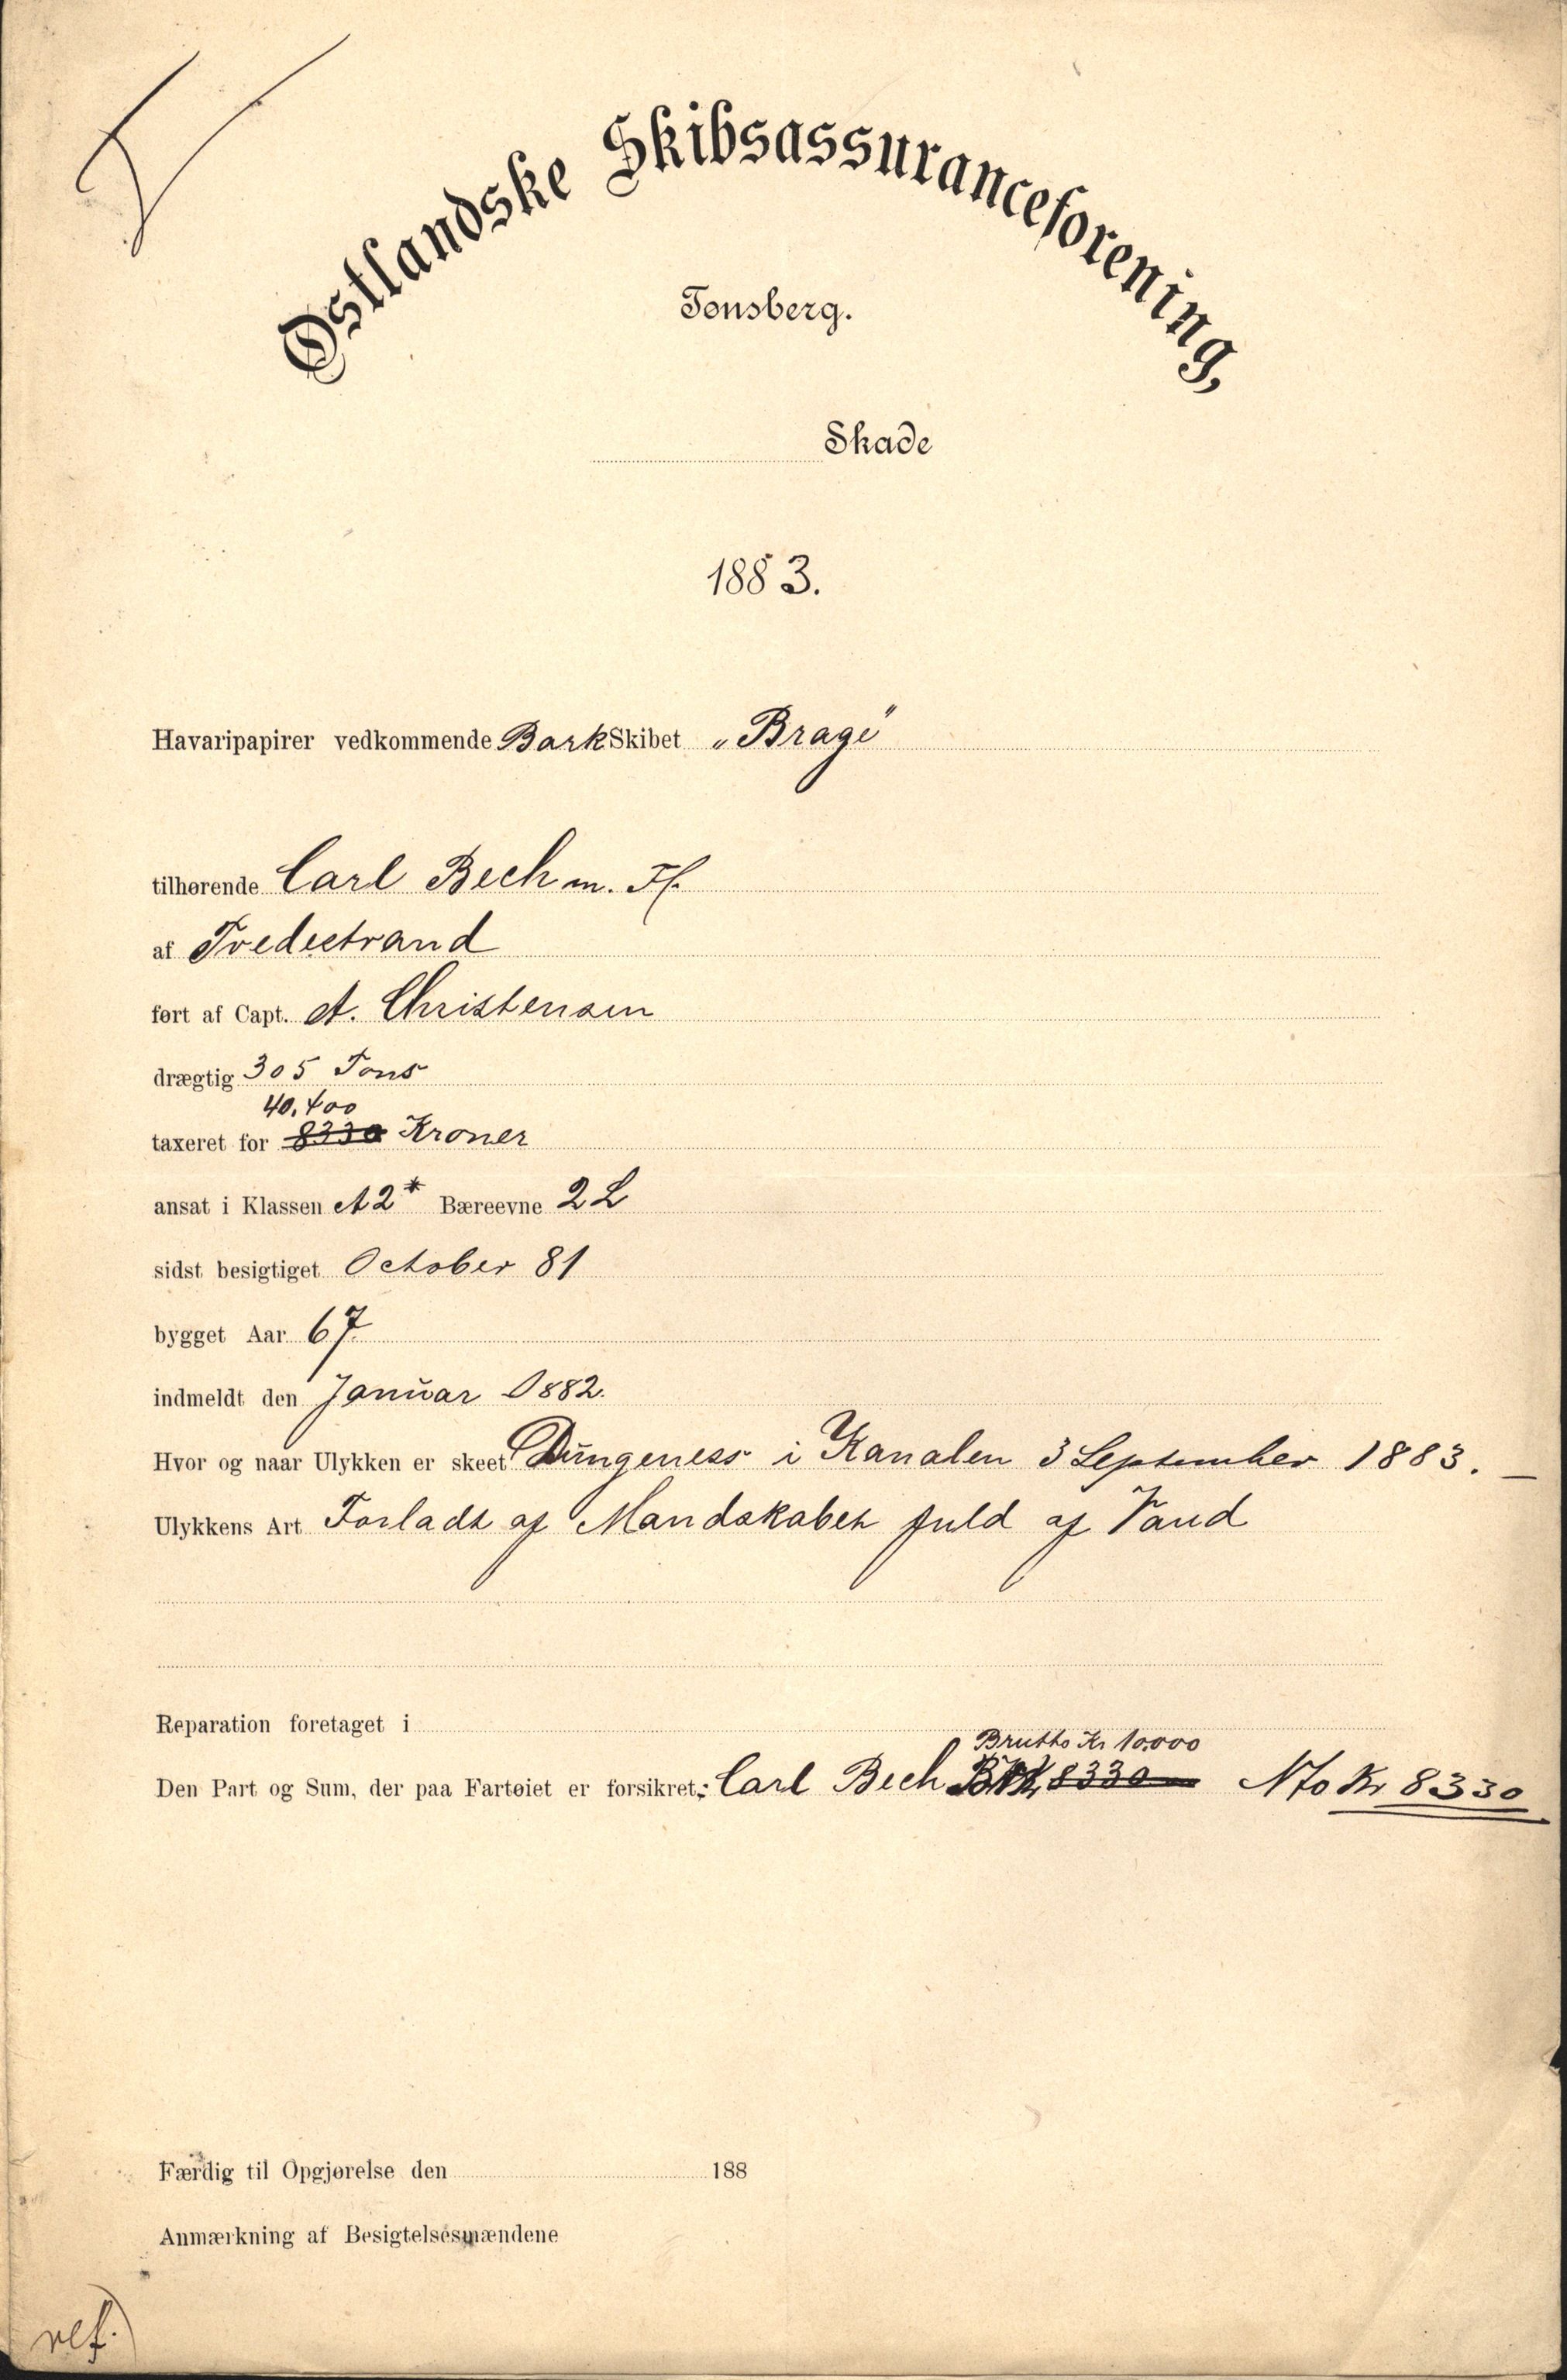 Østlandske Skibsassuranceforening,
Tønsberg.
Skade
1883.
Havaripapirer vedkommende Bark Skibet „Brage"
tilhørende Carl Bech m. Fl.
af Tvedestrand
ført af Capt. A. Christensen
drægtig 305 Tons
40,400
taxeret for 8330 Kroner
ansat i Klassen A2* Bæreevne 2 L
sidst besigtiget October 81
bygget Aar 67.
indmeldt den Januar 1882.
Hvor og naar Ulykken er skeet Dungeness i Kanalen 3 September 1883. —
Ulykkens Art Forladt af Mandskabet fuld af Vand
Reparation foretaget i
Brutto Kr 10.000
Den Part og Sum, der paa Fartøiet er forsikret: Carl Bech 8330 Nto Kr 8330
Færdig til Opgjørelse den 188
Anmærkning af Besigtelsesmændene
ref.)